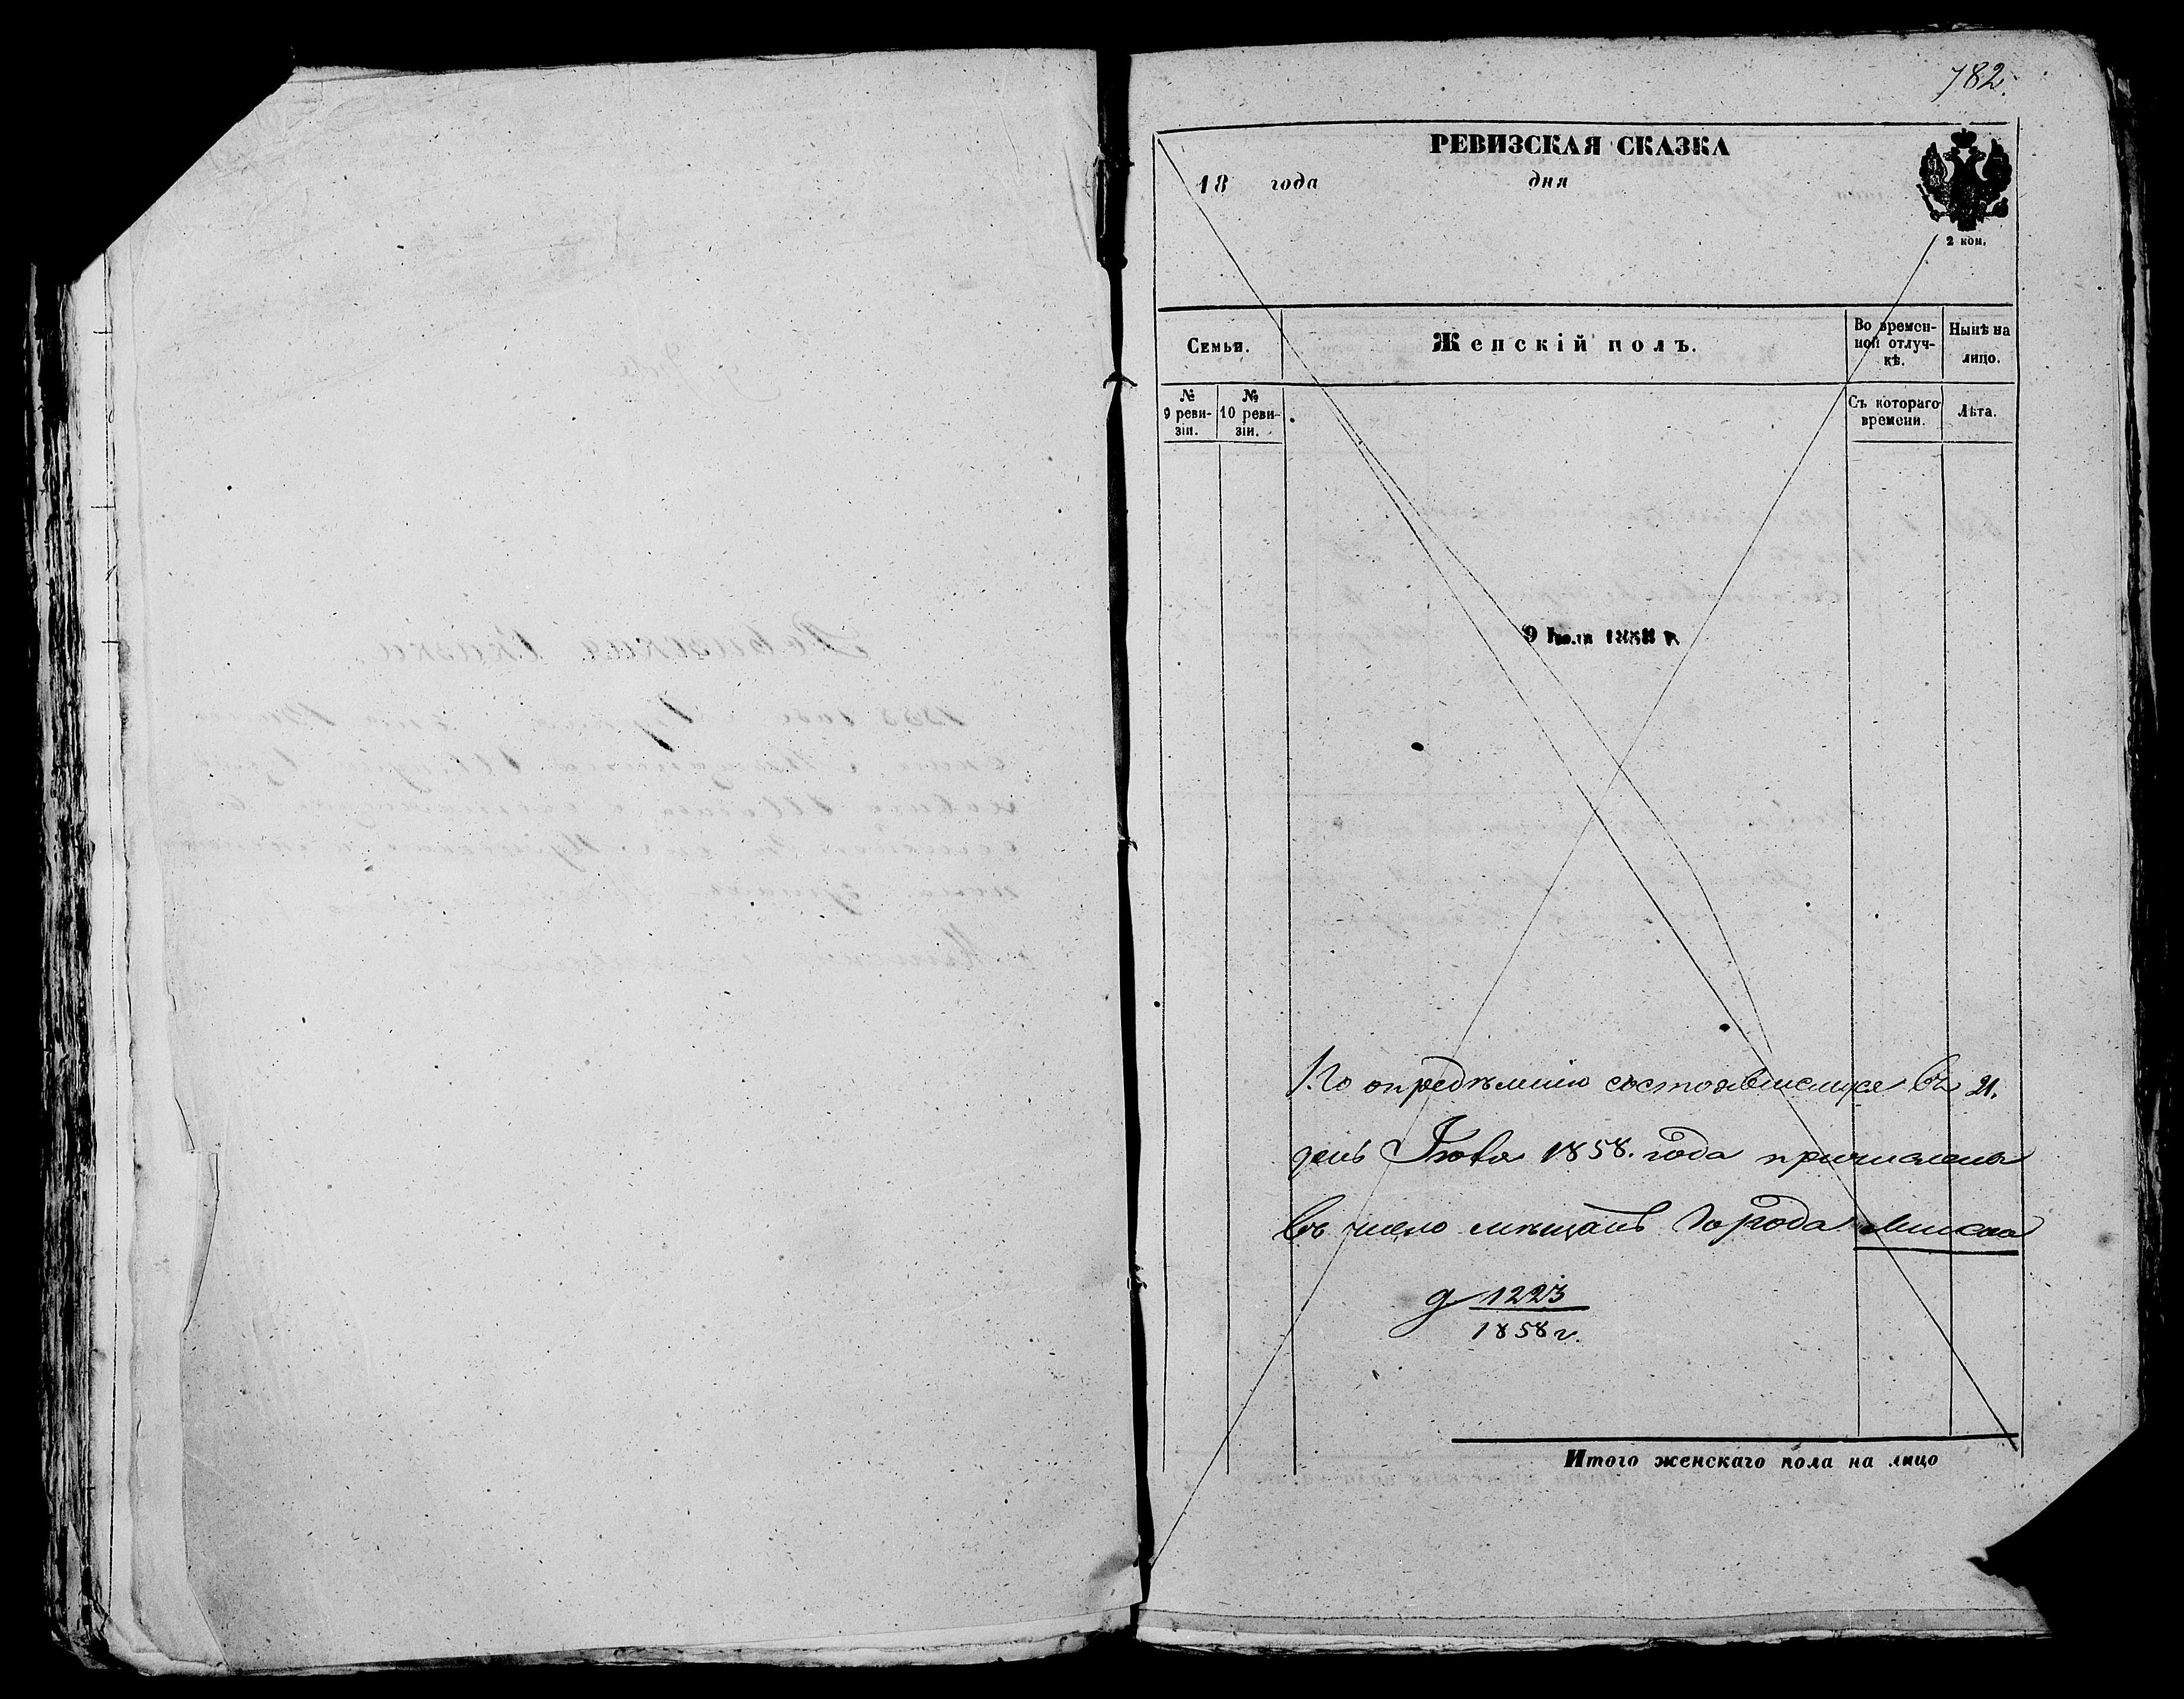 782.
РЕВИЗСКАЯ СКАЗКА
18 года дня
2 коп.
Семьи.
Женскій полъ.
Во времен-
ной отлуч-
кѣ.
Нынѣ на
лицо.
№
9 реви-
зіи.
№
10 реви-
зіи.
Съ котораго
времени.
Лѣта.
9 Іюля 1858 г.
По опредѣленію состоявшемуся въ 21.
день 1858. года причислена
въ число мѣщанъ города Минска
1223
1858 г.
Итого женскаго пола на лицо